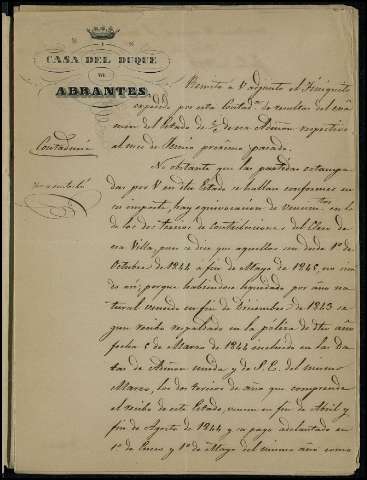 CASA DEL DUQUE
DE
ABRANTES.
Contaduría
Remito a V adjunto el finiquito
expedido por esta Contad.ª de resultas del exá-
men del Estado de de esa Admon respectivo
al mes de Junio próximo pasado.
No obstante que las partidas estampa-
das por V en dho Estado se hallan conformes en
su importe, hay equivocacion de vencim.tos en la
de los dos tercios de contribucion del Clero de
esa Villa, pues se dice que aquellos son desde 1º de
Octubre de 1844 á fin de Mayo de 1845, no sien
do así; porque habiendose liquidado por año na-
tural vencido en fin de Diciembre de 1843 se-
gun recibo respaldado en la póliza de dho año
fecha de Marzo de 1844 incluido en las Da-
tas de Admon unida y de S. E. del mismo
Marzo, los dos tercios de año que comprende
el recibo de este Estado, vencen en fin de Abril y
fin de Agosto de 1844 y su pago adelantado en
1º de Enero y 1º de Mayo del mismo año como